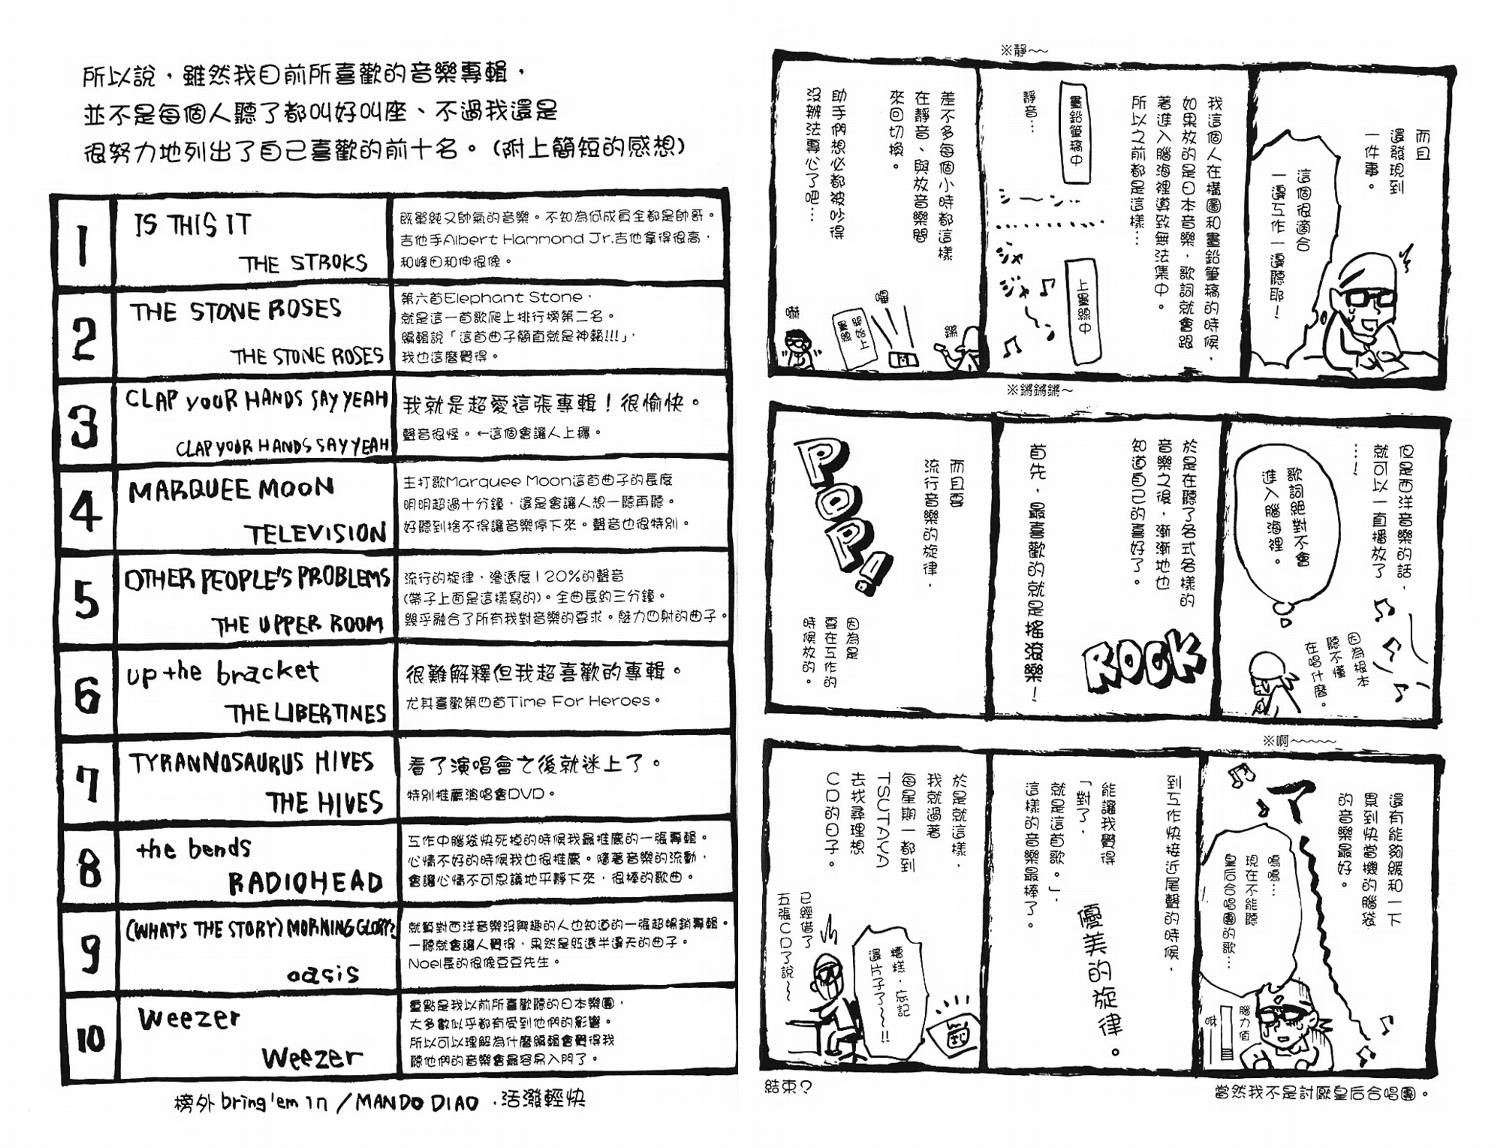 ※靜~~
而且
還發現到
一件事。
這個很適合
一邊工作一邊聽耶!
我這個人在構圖和畫鉛筆稿的時候,
如果放的是日本音樂,歌詞就會跟
著進入腦海裡導致無法集中。
所以之前都是這樣…
畫鉛筆稿中
靜音…
シ~ン…
ジャ
ジャ
ジャ~
上墨線中
差不多每個小時都這樣
在靜音、與放音樂間
來回切換。
助手們想必都被吵得
沒辦法專心了吧…
開始上
墨線
嚇
※鏘鏘鏘~
但是西洋音樂的話,
就可以一直播放了
…!
歌詞絕對不會
進入腦海裡。
因為根本
聽不懂
在唱什麼。
於是在聽了各式各樣的
音樂之後,漸漸地也
知道自己的喜好了。
ROCK
首先,最喜歡的就是搖滾樂!
而且要
流行音樂的旋律,
POP!
因為是
要在工作的
時候放的。
※啊~~~~~
還有能夠緩和一下
累到快當機的腦袋
的音樂最好。
嗚嗚…
現在不能聽
皇后合唱團的歌…
腦力值
到工作快接近尾聲的時候,
能讓我覺得
「對了,
就是這首歌。」,
這樣的音樂最棒了。
優美的旋律。
於是就這樣,
我就過著
每星期一都到
TSUTAYA
去找尋理想
CD的日子。
已經借了
五張CD了說~
糟糕,忘記
還片子了~~!!
結束?
當然我不是討厭皇后合唱團。
所以說,雖然我目前所喜歡的音樂專輯,
並不是每個人聽了都叫好叫座、不過我還是
很努力地列出了自己喜歡的前十名。(附上簡短的感想)
1
IS THIS IT
THE STROKS
既單純又帥氣的音樂。不知為何成員全都是帥哥。
吉他手Albert Hammond Jr.吉他拿得很高,
和峰田和伸很像。
2
THE STONE ROSES
THE STONE ROSES
第六首Elephant Stone,
就是這一首歌爬上排行榜第二名。
編輯說「這首曲子簡直就是神蹟!!!」,
我也這麼覺得。
3
CLAP YOUR HANDS SAY YEAH
CLAP YOUR HANDS SAY YEAH
我就是超愛這張專輯!很愉快。
聲音很怪。←這個會讓人上癮。
4
MARQUEE MOON
TELEVISION
主打歌Marquee Moon這首曲子的長度
明明超過十分鐘,還是會讓人想一聽再聽。
好聽到捨不得讓音樂停下來。聲音也很特別。
5
OTHER PEOPLE'S PROBLEMS
THE UPPER ROOM
流行的旋律、滲透度120%的聲音
(帶子上面是這樣寫的)。全曲長約三分鐘。
幾乎融合了所有我對音樂的要求。魅力四射的曲子。
6
up the bracket
THE LIBERTINES
很難解釋但我超喜歡的專輯。
尤其喜歡第四首Time For Heroes。
7
TYRANNOSAURUS HIVES
THE HIVES
看了演唱會之後就迷上了。
特別推薦演唱會DVD。
8
the bends
RADIOHEAD
工作中腦袋快死掉的時候我最推薦的一張專輯。
心情不好的時候我也很推薦。隨著音樂的流動,
會讓心情不可思議地平靜下來,很棒的歌曲。
9
(WHAT'S THE STORY) MORNING GLORY?
oasis
就算對西洋音樂沒興趣的人也知道的一張超暢銷專輯。
一聽就會讓人覺得,果然是紅透半邊天的曲子。
Noel長的很像豆豆先生。
10
Weezer
Weezer
重點是我以前所喜歡聽的日本樂團,
大多數似乎都有受到他們的影響。
所以可以理解為什麼編輯會覺得我
聽他們的音樂會最容易入門了。
榜外 bring'em in / MANDO DIAO .活潑輕快